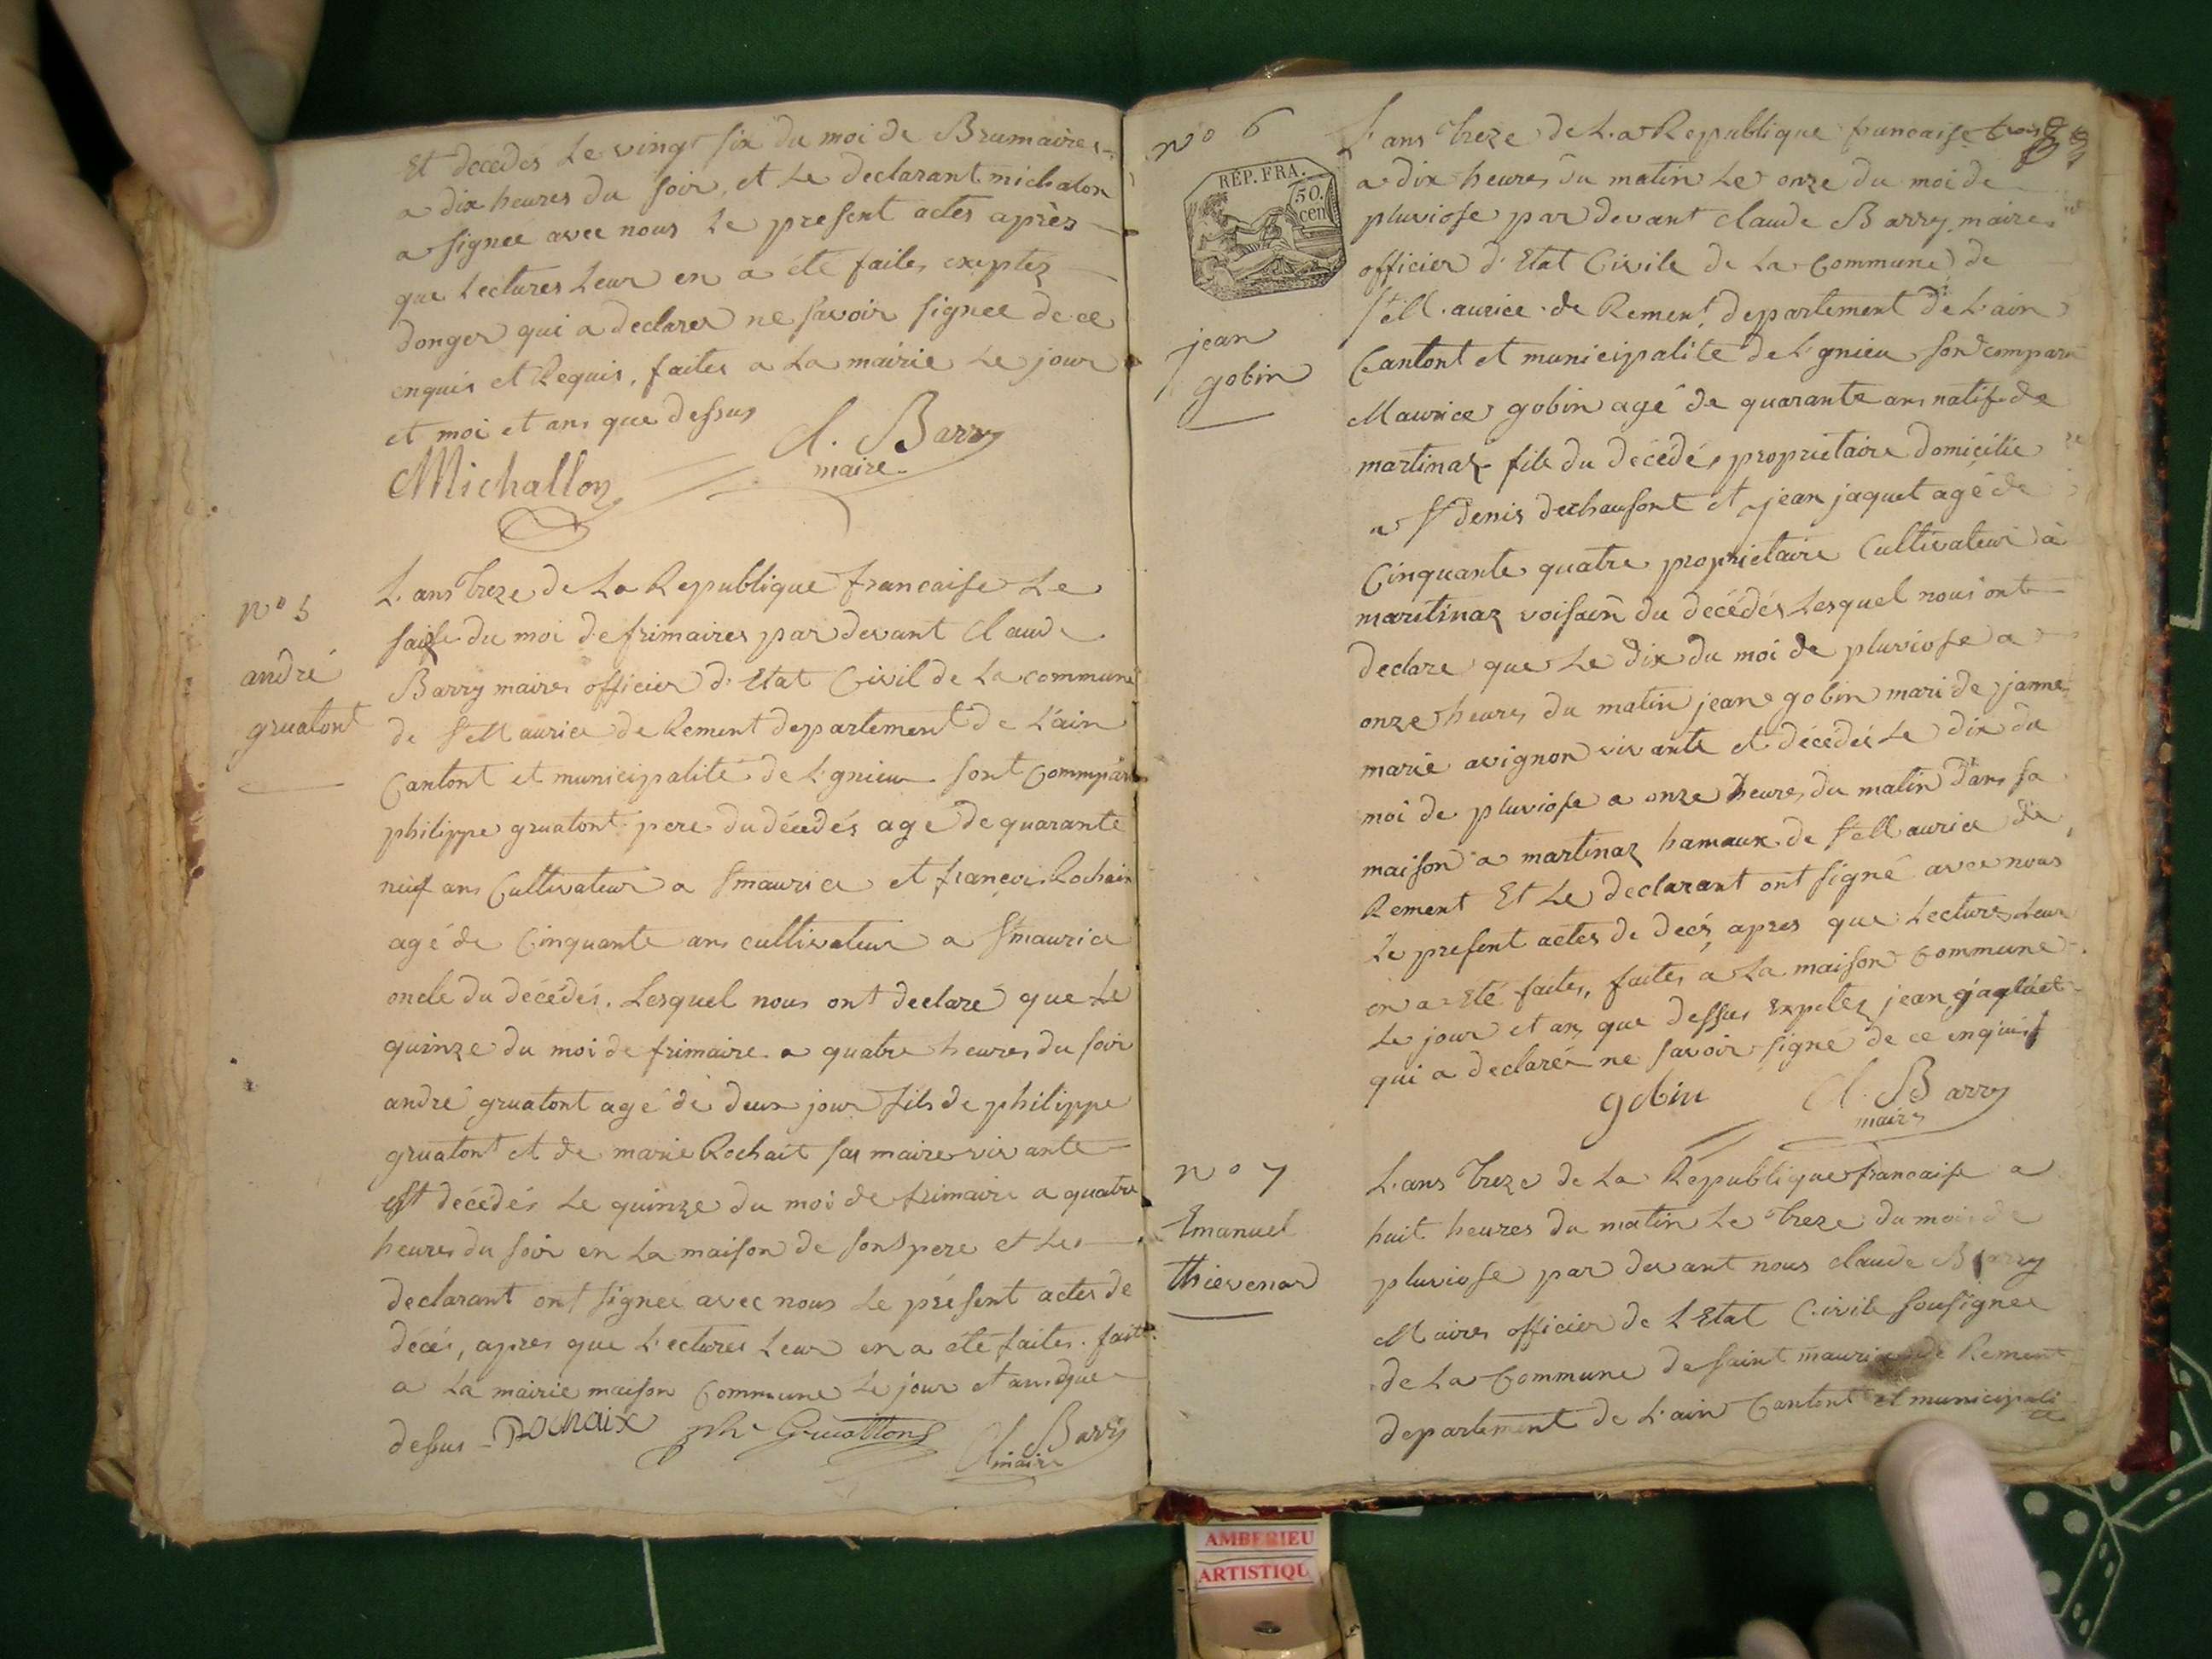 Et decedés Le vingt six du moi de Brumaires
a dix heures du soir, et Le declarant michalon
a signee avec nous Le present actes après
que Lectures Leur en a été faites exeptez
donger qui a declarer ne savoir signee de ce
enquis et Requis, faites a La mairie Le jour
et moi et ans que dessus
Cl. Barry
maire
Michallon
n° 5
andré
gruatont
L'ans treze de La Republique francaise Le
du moi de frimaires par devant Claude
Barry maires officier d'Etat Civil de La commune
de St Maurice de Rement departement de L'ain
Cantont et municipalité de Lgnieu sont Commpar
philippe gruatont pere du décedés age de quarante
neuf ans Cultivateur a St maurice et françois Rochaix
agé de Cinquante ans cultivateur a St maurice
oncle du décédés. Lesquel nous ont declaré que Le
quinze du moi de frimaire a quatre heures du soir
andré gruatont agé de deux jour fils de philippe
gruatont et de marie Rochait sa maire vivante
est décédés Le quinze du moi de frimaire a quatre
heures du soir en La maison de sont pere et Les
declarant ont signée avec nous Le présent actes de
décés, apres que Lectures Leur en a été faites. fait
a La mairie maison Commune Le jour et ans que
dessus Rochaix phe Gruattont Cl. Barry
maire
n° 6
REP. FRA.
50.
cen
jean
gobin
L'ans treze de La Republique francaise
a dix heures du matin Le onze du moi de
pluviose par devant claude Barry maires
officier d'Etat Civile de La Commune de
St Maurice de Rement departement de L'ain
Cantont et municipalite de Lgnieu sont compar
Maurice gobin agé de quarante ans natif de
martinaz fils du décédés propriétaire domicilié
a St denis dechausont et jean jaquet agé de
Cinquante quatre proprietaire Cultivateur à
martinaz voisain du décédés Lesquel nous ont
declare que Le dix du moi de pluviose a
onze heures du matin jean gobin mari de janne
marie avignon vivante et décédés Le dix du
moi de pluviose a onze heures du matin dans sa
maison a martinaz hamaux de St Maurice de
Rement Et Le declarant ont signé avec nous
Le present actes de decés, apres que Lectures Leur
en a Eté faites, faites a La maison Commune
Le jour et ans que dessus Expetez jean jaquet
qui a declarér ne savoir signé de ce enquis
gobin Cl. Barry
maire
n° 7
Emanuel
thievenar
L'ans treze de La Republique francaise a
huit heures du matin Le treze du mois de
pluviose par devant nous claude Barry
Maires officier de L'Etat Civile sousignee
de La Commune de saint maurice de Rement
departement de L'ain Cantont et municipali
AMBERIEU
ARTISTIQU